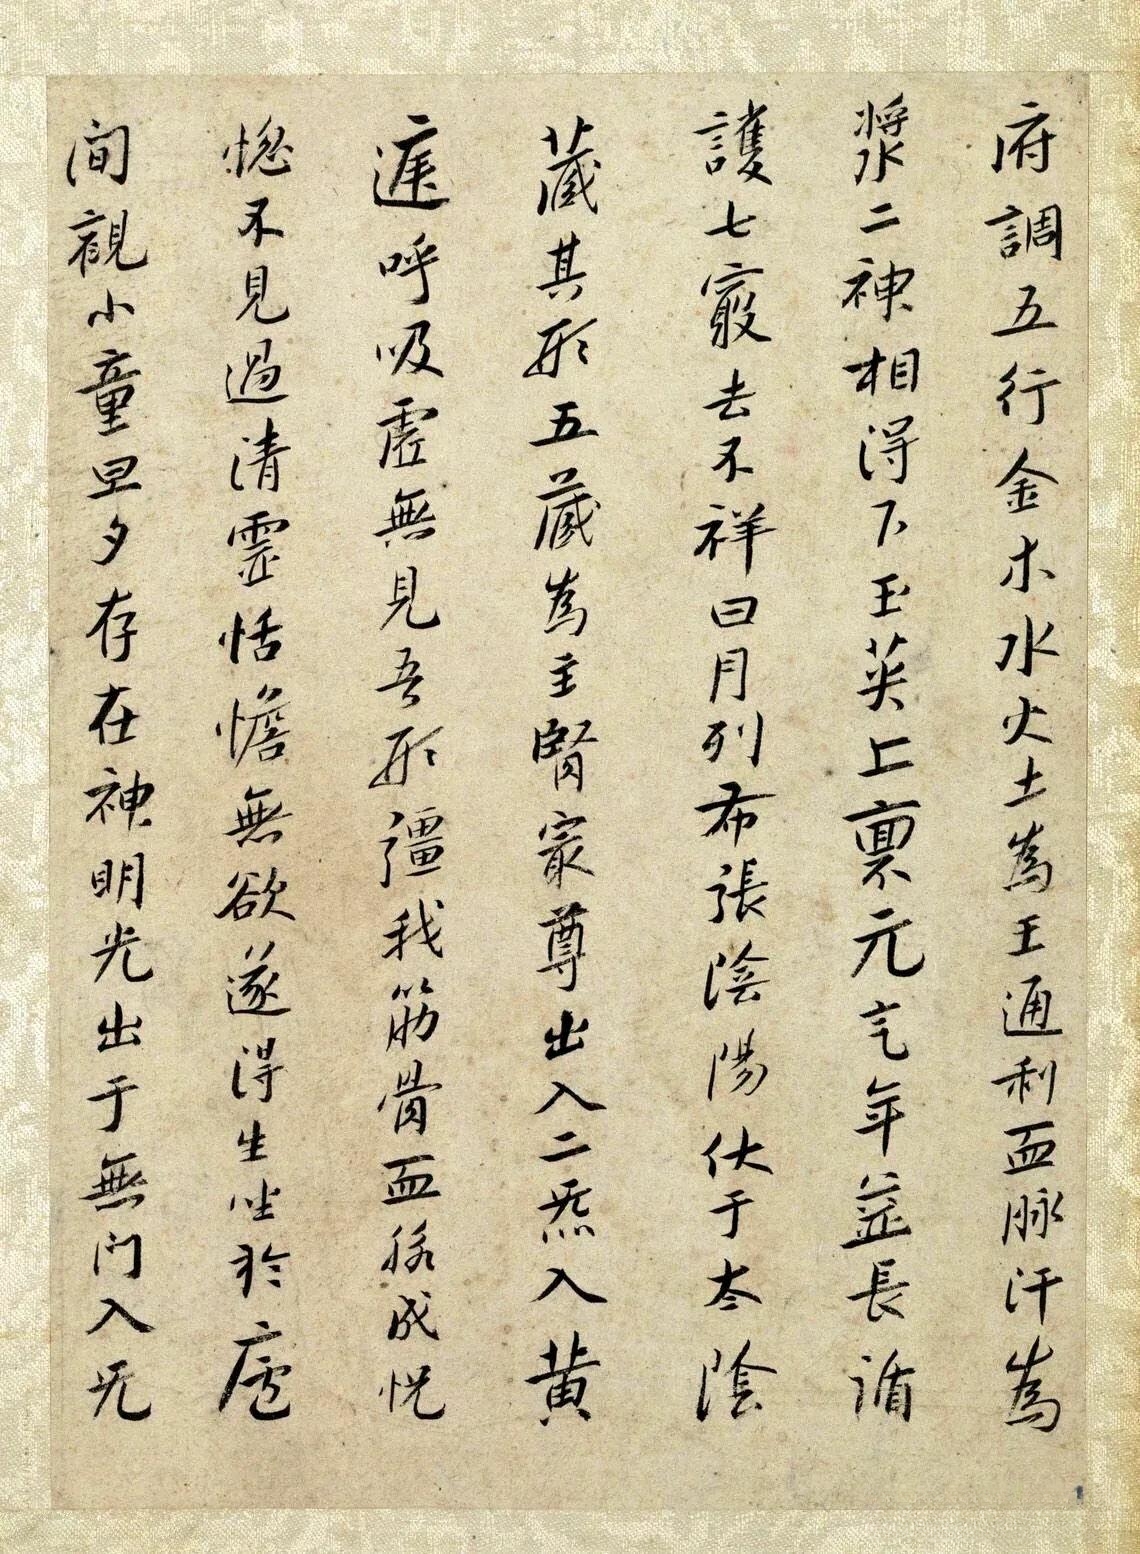 府調五行金木水火土為王通利血脉汗為
漿二神相得下玉英上禀元气年益長循
護七竅去不祥日月列布張陰陽伏于太陰
藏其形五藏為主腎最尊出入二炁入黄
庭呼吸虛無見吾形彊我筋骨血脉成恍
惚不見過清靈恬憺無欲遂得生坐於廬
間觀小童旦夕存在神明光出于無門入无